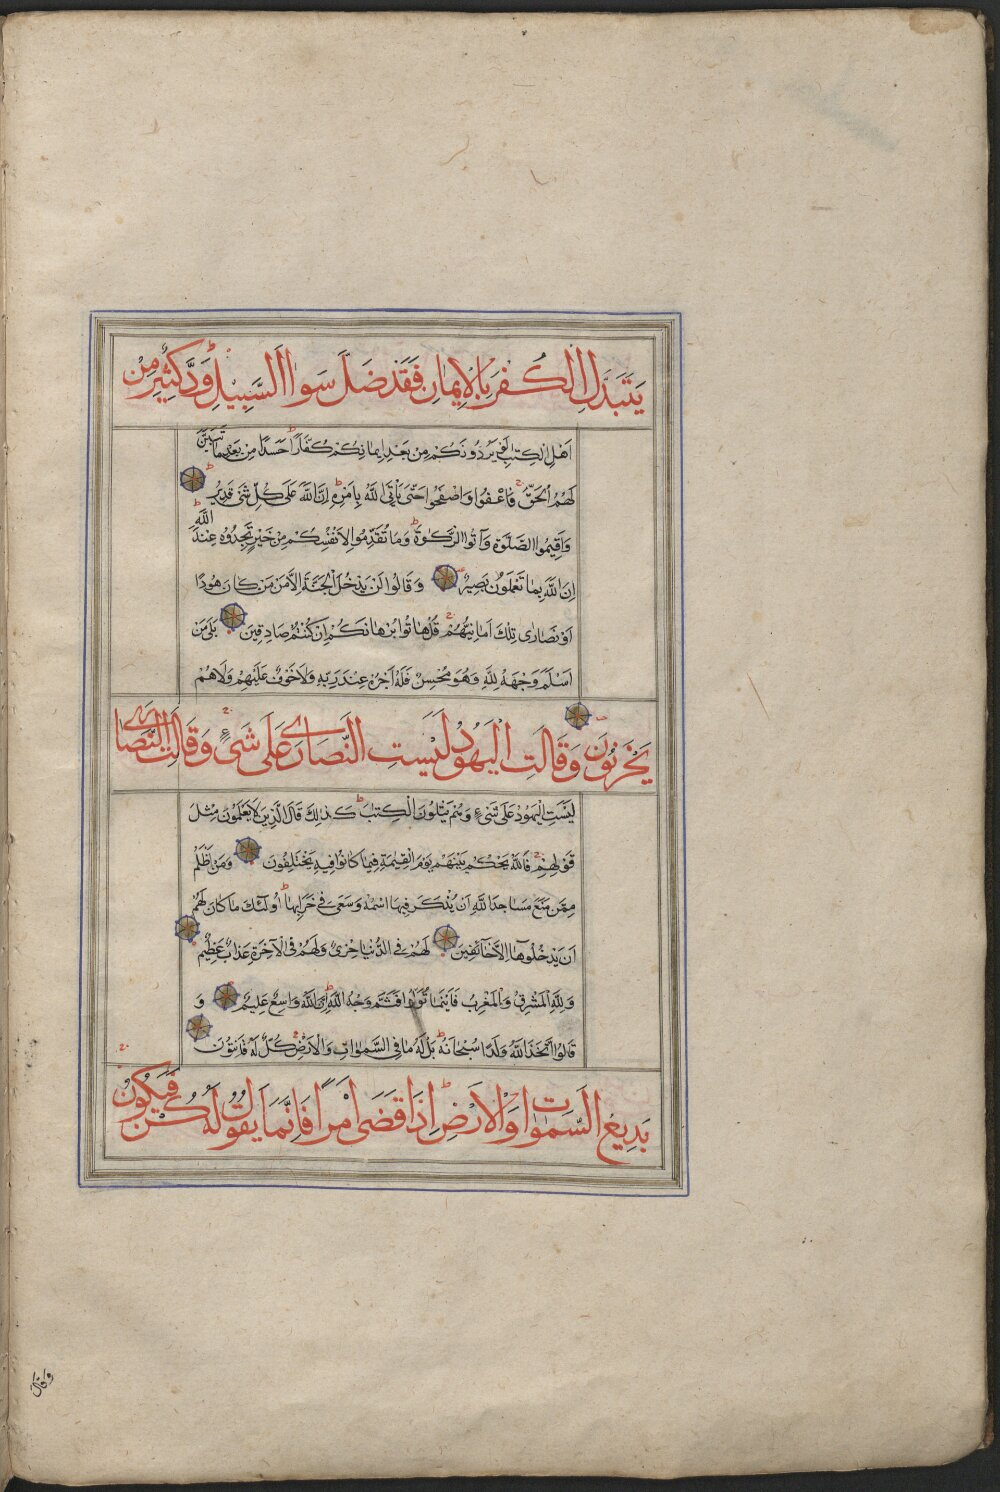 يَتَبَدَّلِ الْكُفْرَ بِالْإِيمَانِ فَقَدْ ضَلَّ سَوَاءَ السَّبِيلِ وَدَّ كَثِيرٌ مِنْ
اَهْلِ الْكِتٰبِ لَوْ يَرُدُّونَكُمْ مِنْ بَعْدِ اِيمَانِكُمْ كُفَّارًا حَسَدًا مِنْ بَعْدِ مَا تَبَيَّنَ
لَهُمُ الْحَقُّ فَاعْفُوا وَاصْفَحُوا حَتّٰى يَأْتِيَ اللّٰهُ بِاَمْرِهِ اِنَّ اللّٰهَ عَلٰى كُلِّ شَىْءٍ قَدِيرٌ
وَاَقِيمُوا الصَّلٰوةَ وَآتُوا الزَّكٰوةَ وَمَا تُقَدِّمُوا لِاَنْفُسِكُمْ مِنْ خَيْرٍ تَجِدُوهُ عِنْدَ اللّٰهِ
اِنَّ اللّٰهَ بِمَا تَعْمَلُونَ بَصِيرٌ وَقَالُوا لَنْ يَدْخُلَ الْجَنَّةَ اِلَّا مَنْ كَانَ هُودًا
اَوْ نَصَارٰى تِلْكَ اَمَانِيُّهُمْ قُلْ هَاتُوا بُرْهَانَكُمْ اِنْ كُنْتُمْ صَادِقِينَ بَلٰى مَنْ
اَسْلَمَ وَجْهَهُ لِلّٰهِ وَهُوَ مُحْسِنٌ فَلَهُ اَجْرُهُ عِنْدَ رَبِّهِ وَلَا خَوْفٌ عَلَيْهِمْ وَلَا هُمْ
يَحْزَنُونَ وَقَالَتِ الْيَهُودُ لَيْسَتِ النَّصَارٰى عَلٰى شَىْءٍ وَقَالَتِ النَّصَارٰى
لَيْسَتِ الْيَهُودُ عَلٰى شَىْءٍ وَهُمْ يَتْلُونَ الْكِتٰبَ كَذٰلِكَ قَالَ الَّذِينَ لَا يَعْلَمُونَ مِثْلَ
قَوْلِهِمْ فَاللّٰهُ يَحْكُمُ بَيْنَهُمْ يَوْمَ الْقِيٰمَةِ فِيمَا كَانُوا فِيهِ يَخْتَلِفُونَ وَمَنْ اَظْلَمُ
مِمَّنْ مَنَعَ مَسَاجِدَ اللّٰهِ اَنْ يُذْكَرَ فِيهَا اسْمُهُ وَسَعٰى فِي خَرَابِهَا اُولٰئِكَ مَا كَانَ لَهُمْ
اَنْ يَدْخُلُوهَا اِلَّا خَائِفِينَ لَهُمْ فِي الدُّنْيَا خِزْىٌ وَلَهُمْ فِي الْآخِرَةِ عَذَابٌ عَظِيمٌ
وَلِلّٰهِ الْمَشْرِقُ وَالْمَغْرِبُ فَاَيْنَمَا تُوَلُّوا فَثَمَّ وَجْهُ اللّٰهِ اِنَّ اللّٰهَ وَاسِعٌ عَلِيمٌ وَ
قَالُوا اتَّخَذَ اللّٰهُ وَلَدًا سُبْحَانَهُ بَلْ لَهُ مَا فِي السَّمٰوَاتِ وَالْاَرْضِ كُلٌّ لَهُ قَانِتُونَ
بَدِيعُ السَّمٰوَاتِ وَالْاَرْضِ اِذَا قَضٰى اَمْرًا فَاِنَّمَا يَقُولُ لَهُ كُنْ فَيَكُونُ
وقال